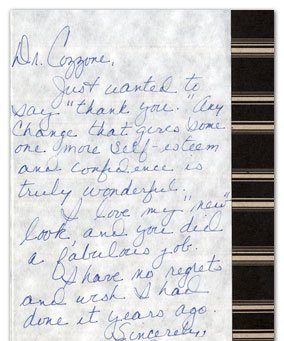 Dr. Cozzone,
Just wanted to
say "thank you." Any
change that gives some
one more self-esteem
and confidence is
truly wonderful.
I love my "new"
look, and you did
a fabulous job.
I have no regrets
and wish I had
done it years ago.
Sincerely,